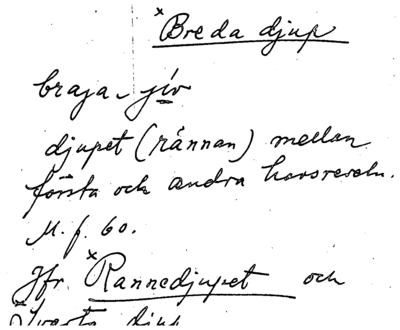 ×Breda djup
braja- jív
djupet (rännan) mellan
första och andra havsreveln.
M. f. 60.
Jfr. ×Rannedjupet och
×Svarta djup